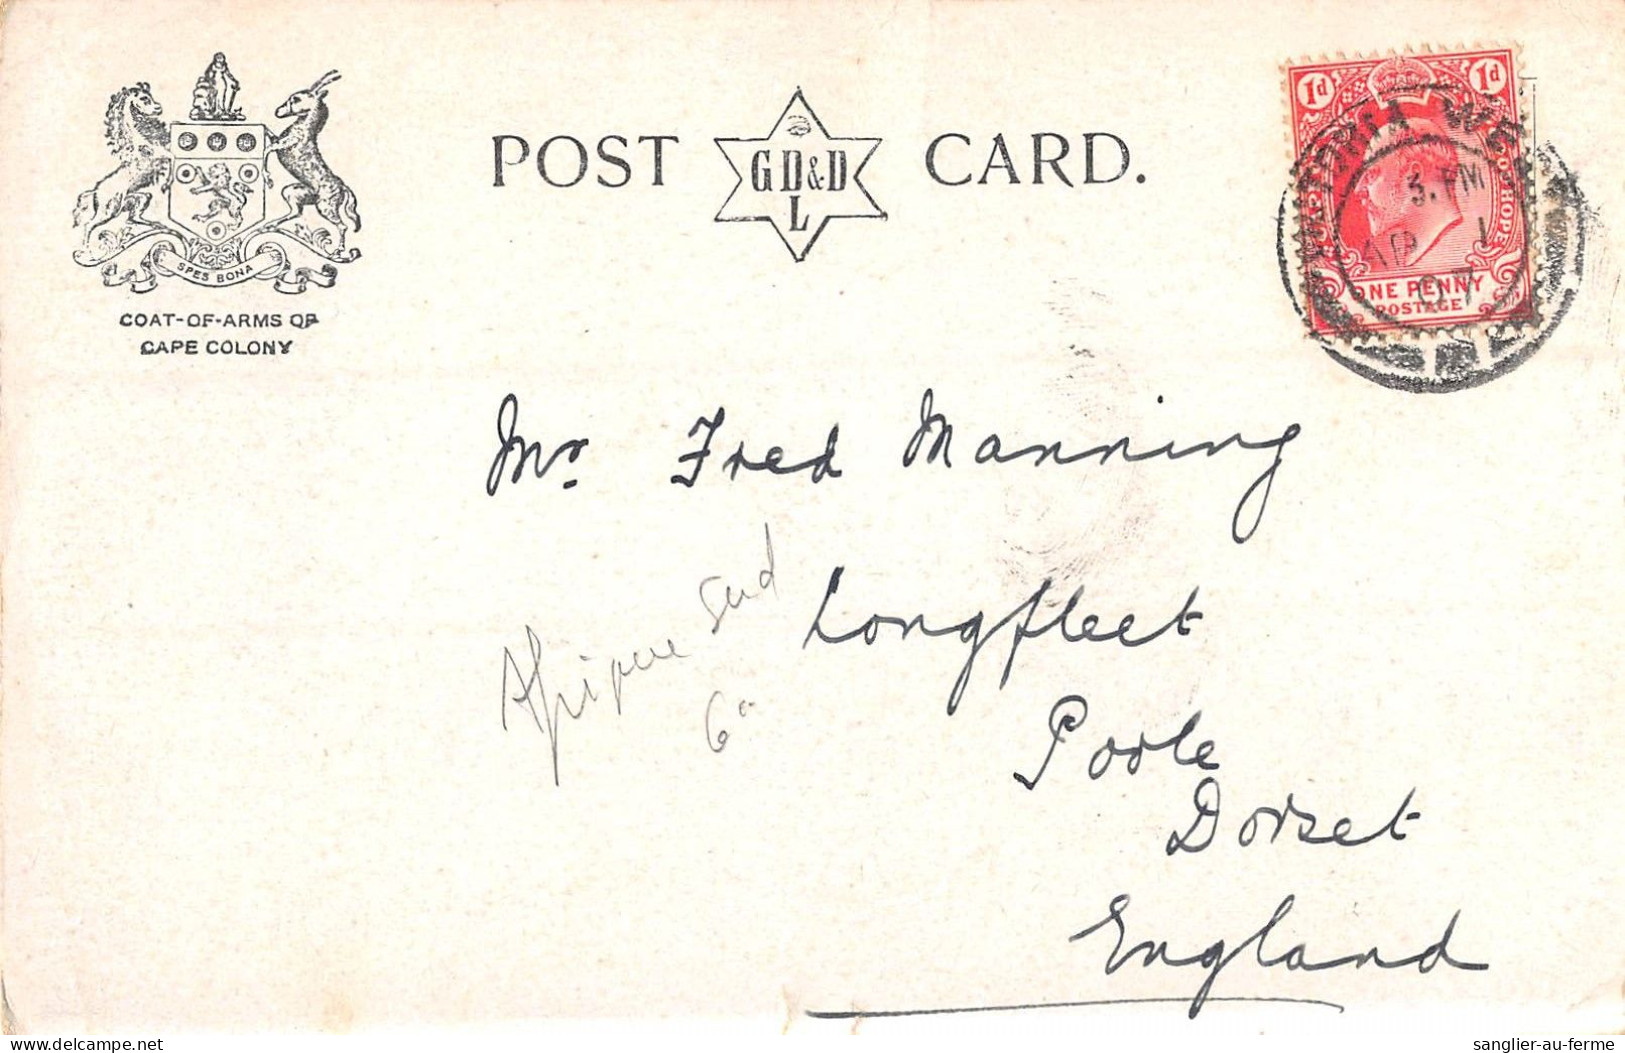 SPES BONA
COAT-OF-ARMS OF
CAPE COLONY
POST GD&D CARD.
L
1d 1d
VICTORIA WEST
OF HOPE
3. PM
AP 1
07
ONE PENNY
POSTAGE
Mr Fred Manning
Longfleet
Poole
Dorset
England
Afrique Sud
6
delcampe.net
sanglier-au-ferme